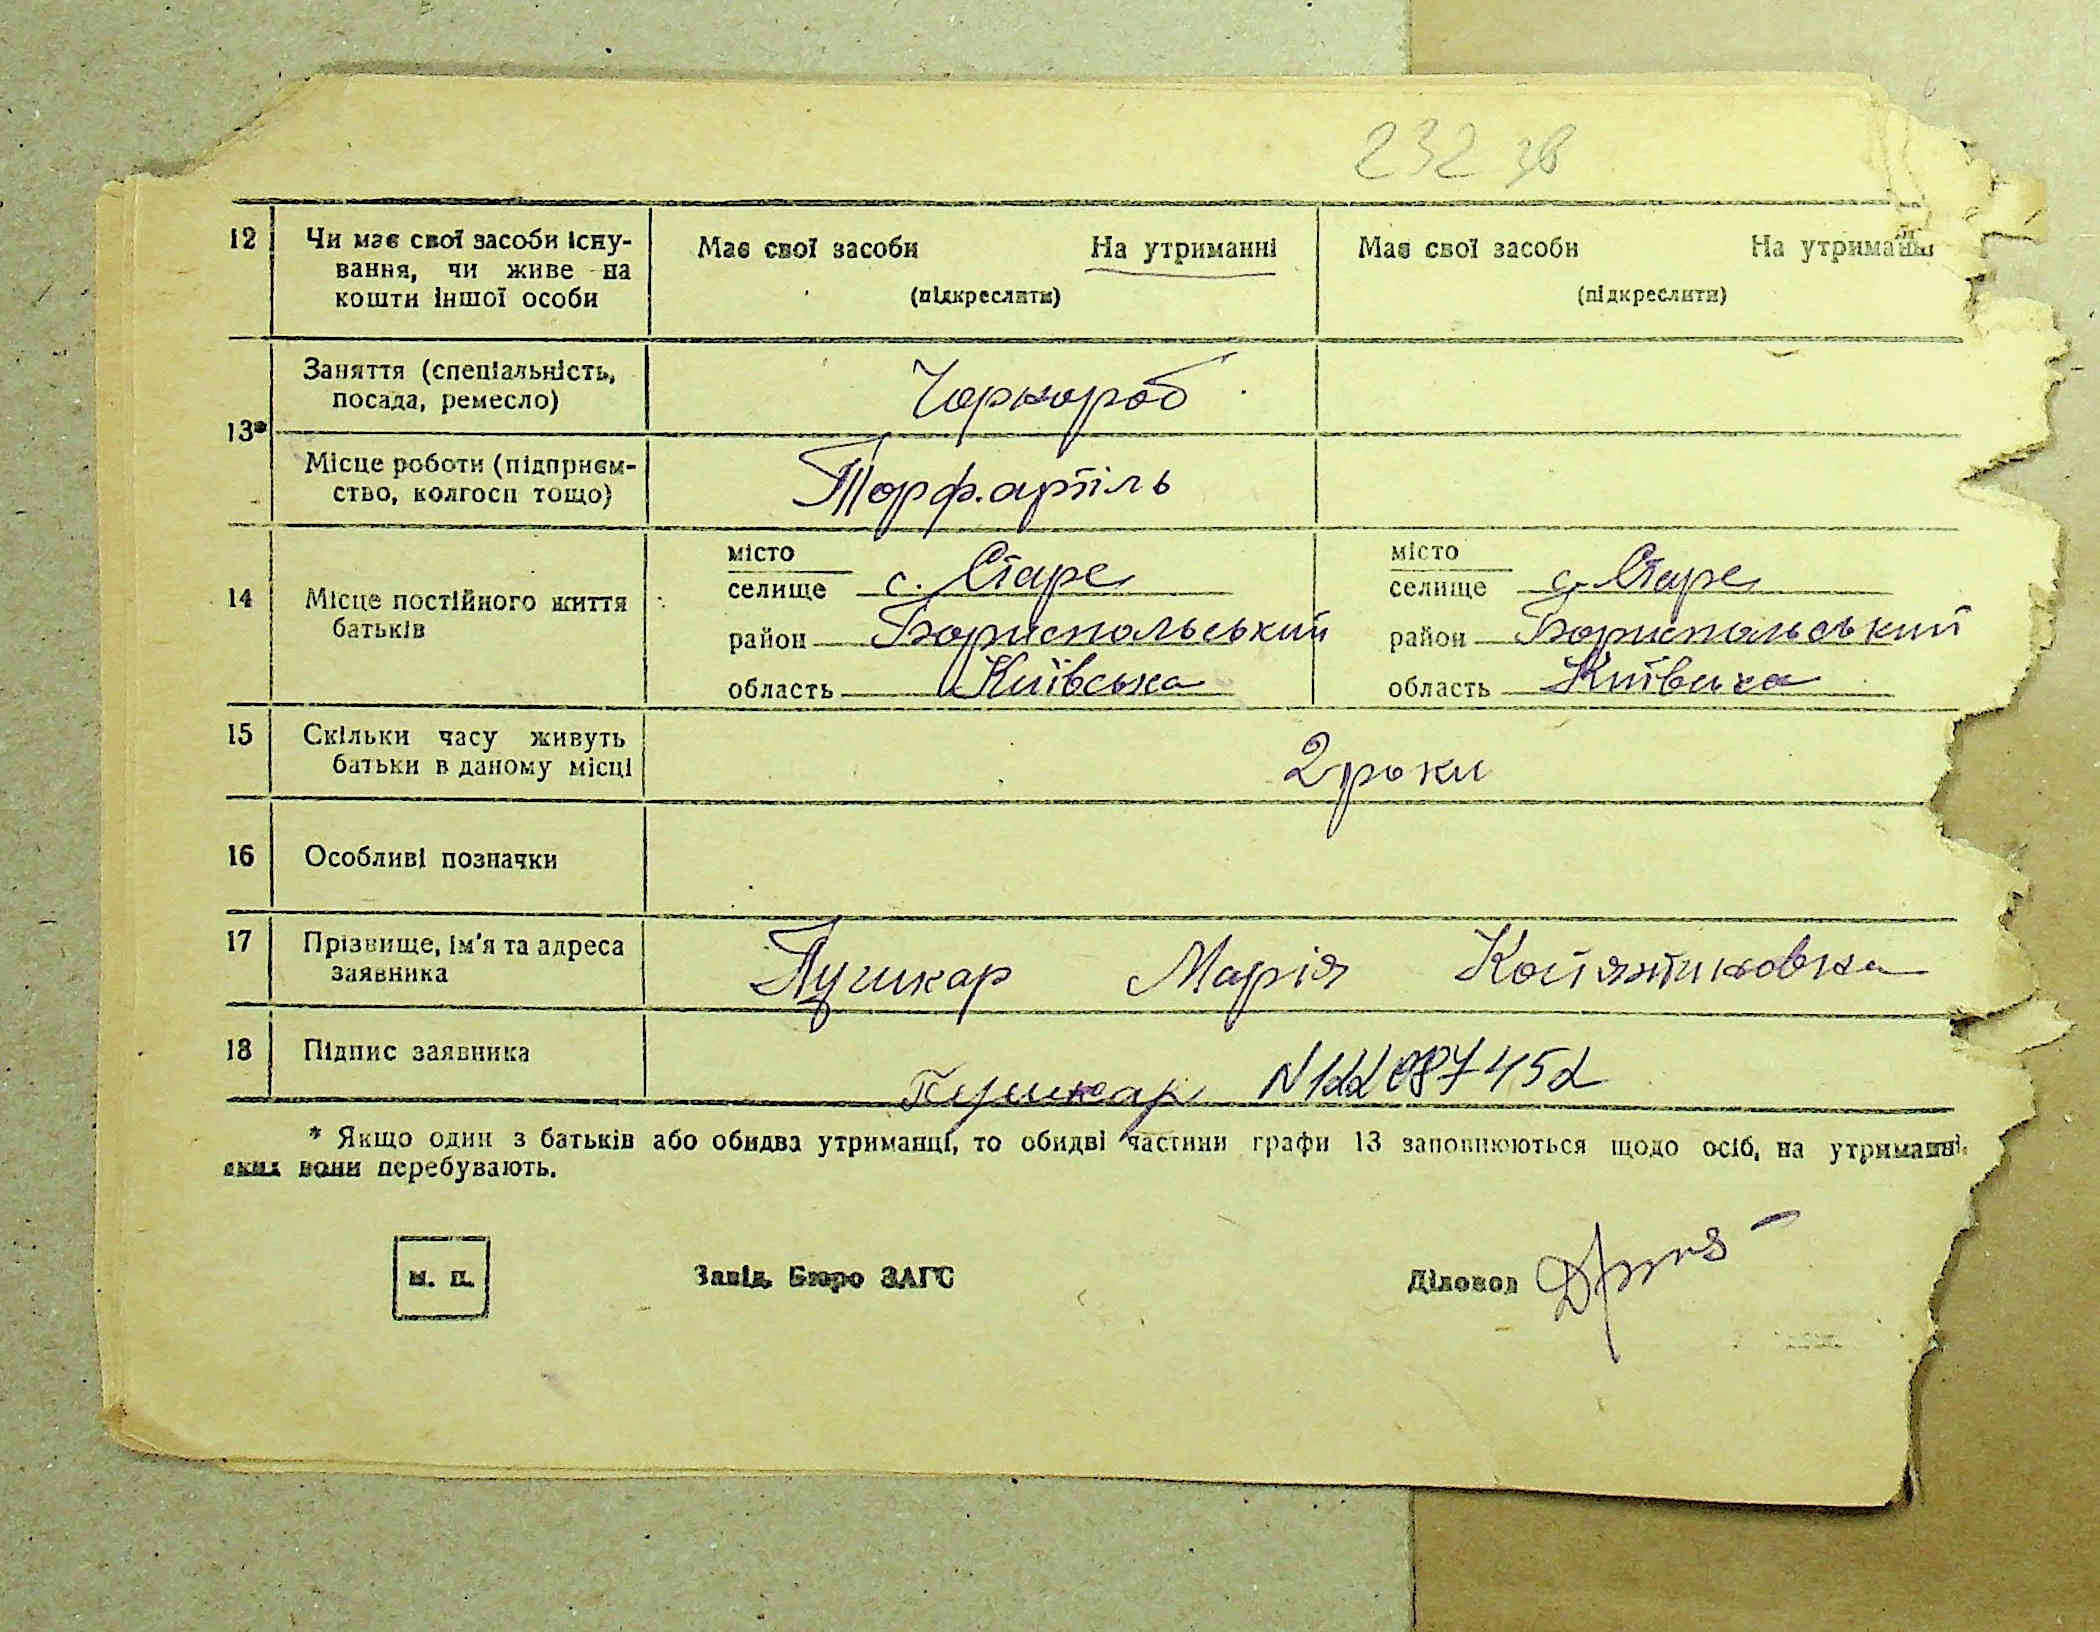 232 зв
12 Чи має свої засоби існу- Має свої засоби На утриманні Має свої засоби На утриманні
вання, чи живе на
кошти іншої особи (підкреслити) (підкреслити)
13* Заняття (спеціальність, Чорнороб
посада, ремесло)
Місце роботи (підприєм- Торф.артіль
ство, колгосп тощо)
14 Місце постійного життя
батьків
місто
селище с. Старе
район Бориспольський
область Київська
місто
селище с. Старе
район Бориспольський
область Київська
15 Скільки часу живуть 2 роки
батьки в даному місці
16 Особливі позначки
17 Прізвище, ім'я та адреса Пушкар Марія
заявника
18 Підпис заявника Пушкар
* Якщо один з батьків або обидва утриманці, то обидві частини графи 13 заповнюються щодо осіб, на утриманні
яких вони перебувають.
м. п. Завід. Бюро ЗАГС Діловод